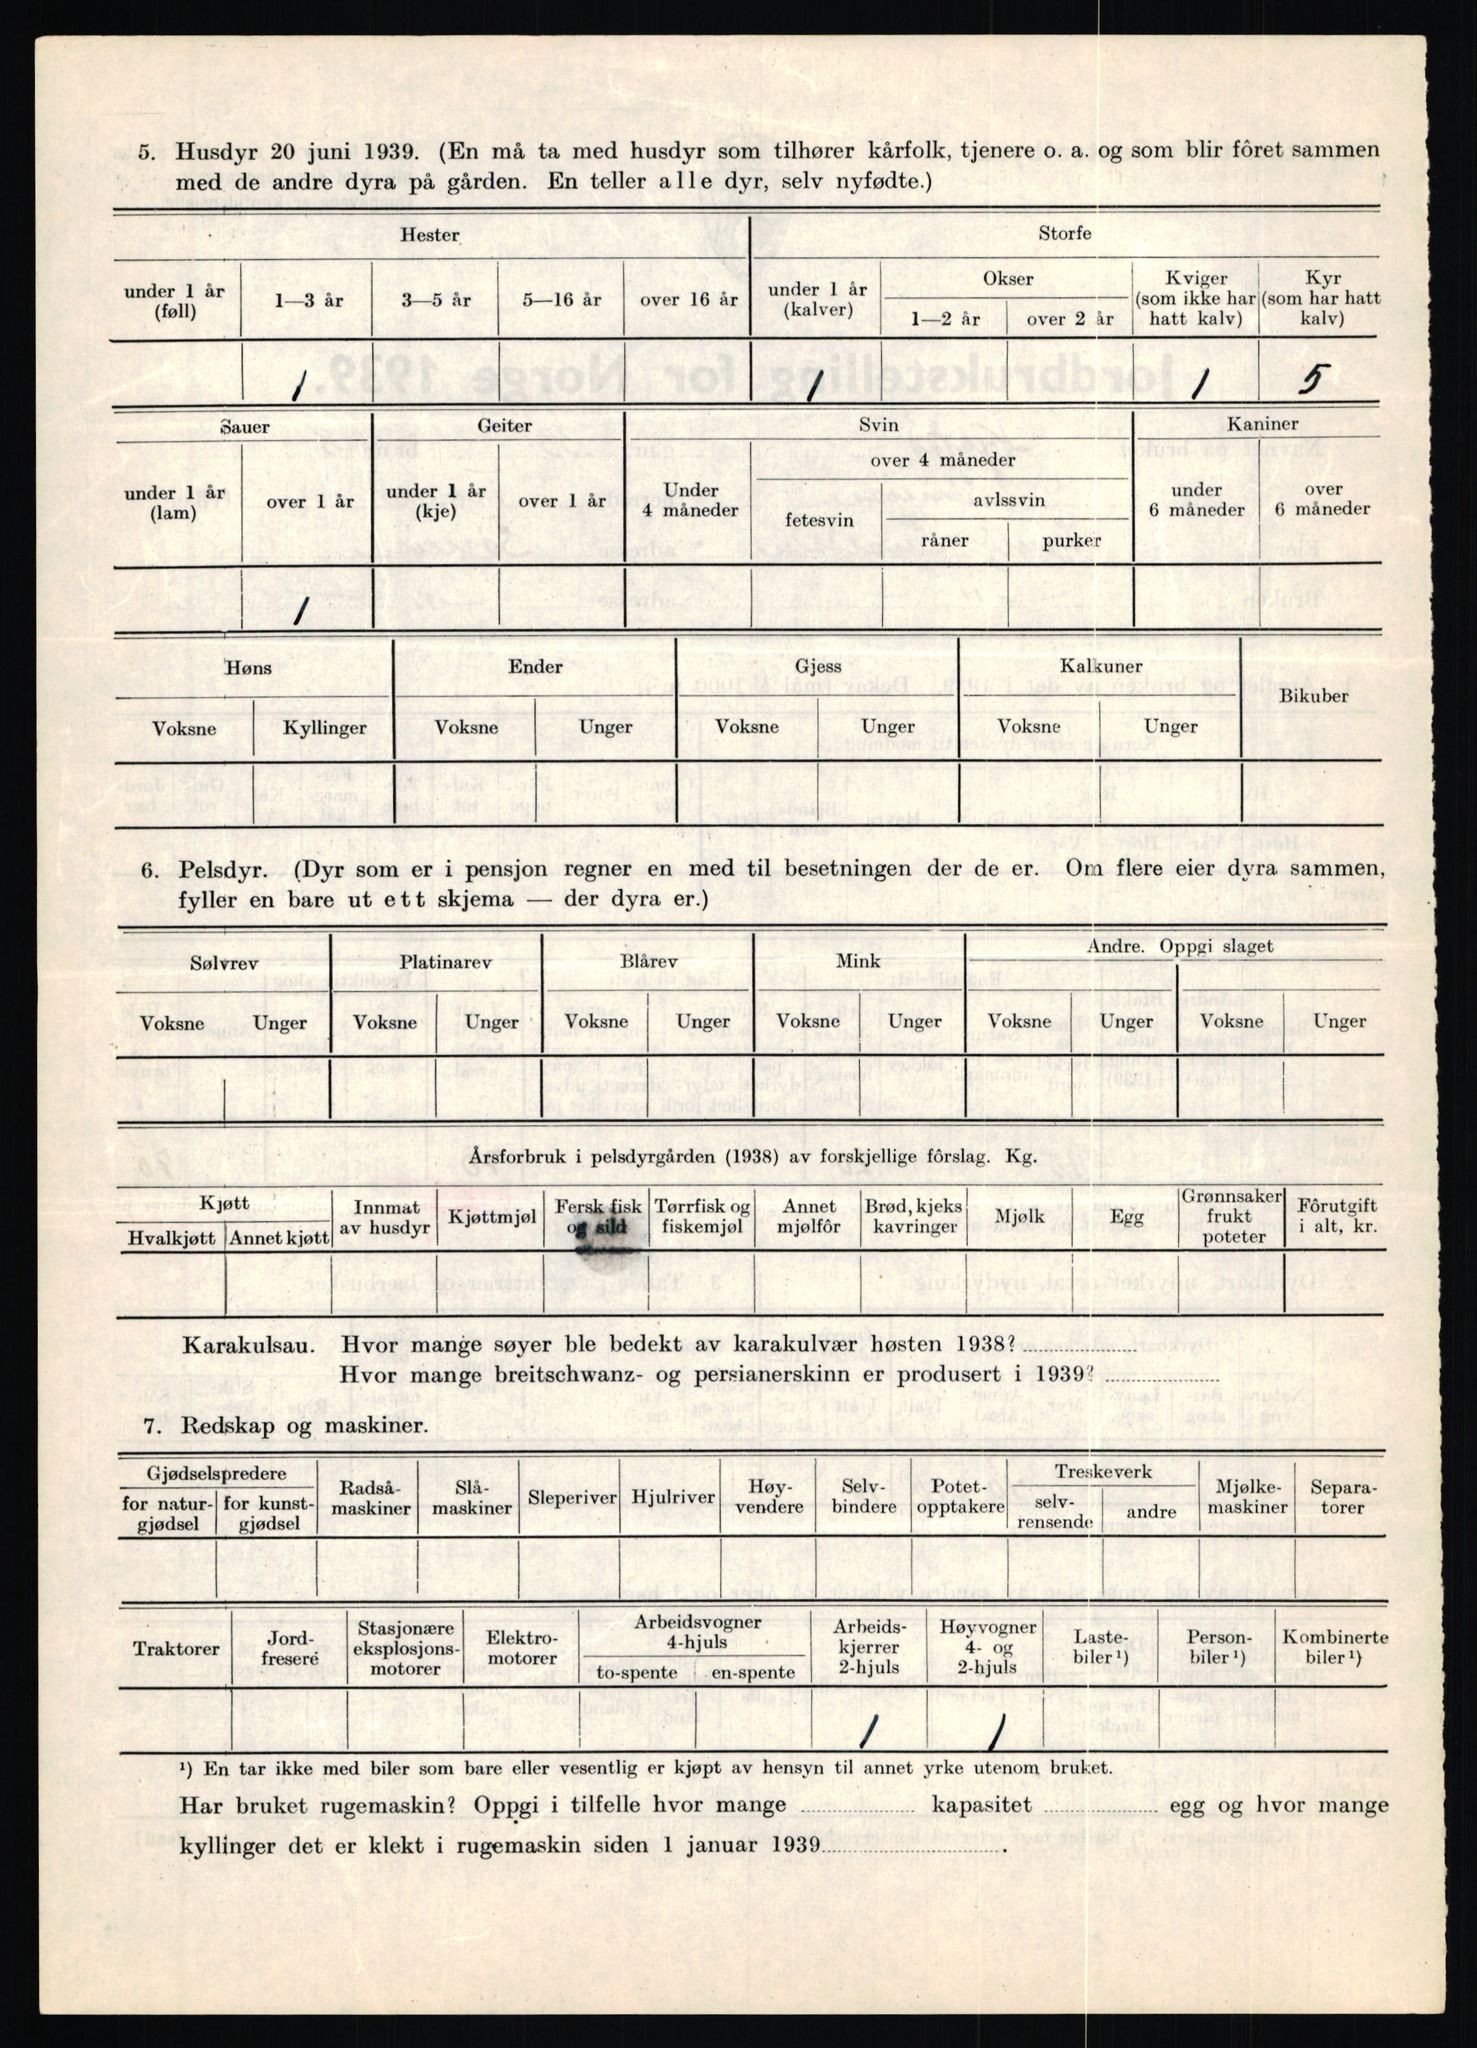 5. Husdyr 20 juni 1939. (En må ta med husdyr som tilhører kårfolk, tjenere o. a. og som blir fôret sammen
med de andre dyra på gården. En teller alle dyr, selv nyfødte.)
Hester Storfe
under 1 år (føll) 1—3 år 3—5 år 5—16 år over 16 år under 1 år (kalver) Okser 1—2 år over 2 år Kviger (som ikke har hatt kalv) Kyr (som har hatt kalv)
1 1 1 5
Sauer Geiter Svin Kaniner
under 1 år (lam) over 1 år under 1 år (kje) over 1 år Under 4 måneder over 4 måneder fetesvin avlssvin råner purker under 6 måneder over 6 måneder
1
Høns Ender Gjess Kalkuner Bikuber
Voksne Kyllinger Voksne Unger Voksne Unger Voksne Unger
6. Pelsdyr. (Dyr som er i pensjon regner en med til besetningen der de er. Om flere eier dyra sammen,
fyller en bare ut ett skjema — der dyra er.)
Sølvrev Platinarev Blårev Mink Andre. Oppgi slaget
Voksne Unger Voksne Unger Voksne Unger Voksne Unger Voksne Unger Voksne Unger
Årsforbruk i pelsdyrgården (1938) av forskjellige fôrslag. Kg.
Kjøtt Hvalkjøtt Annet kjøtt Innmat av husdyr Kjøttmjøl Fersk fisk og sild Tørrfisk og fiskemjøl Annet mjølfôr Brød, kjeks kavringer Mjølk Egg Grønnsaker frukt poteter Fôrutgift i alt, kr.
Karakulsau. Hvor mange søyer ble bedekt av karakulvær høsten 1938?
Hvor mange breitschwanz- og persianerskinn er produsert i 1939?
7. Redskap og maskiner.
Gjødselspredere for natur-gjødsel for kunst-gjødsel Radså-maskiner Slå-maskiner Sleperiver Hjulriver Høy-vendere Selv-bindere Potet-opptakere Treskeverk selv-rensende andre Mjølke-maskiner Separa-torer
Traktorer Jord-fresere Stasjonære eksplosjons-motorer Elektro-motorer Arbeidsvogner 4-hjuls to-spente en-spente Arbeids-kjerrer 2-hjuls Høyvogner 4- og 2-hjuls Laste-biler ¹) Person-biler ¹) Kombinerte biler ¹)
1 1
¹) En tar ikke med biler som bare eller vesentlig er kjøpt av hensyn til annet yrke utenom bruket.
Har bruket rugemaskin? Oppgi i tilfelle hvor mange kapasitet egg og hvor mange
kyllinger det er klekt i rugemaskin siden 1 januar 1939 .